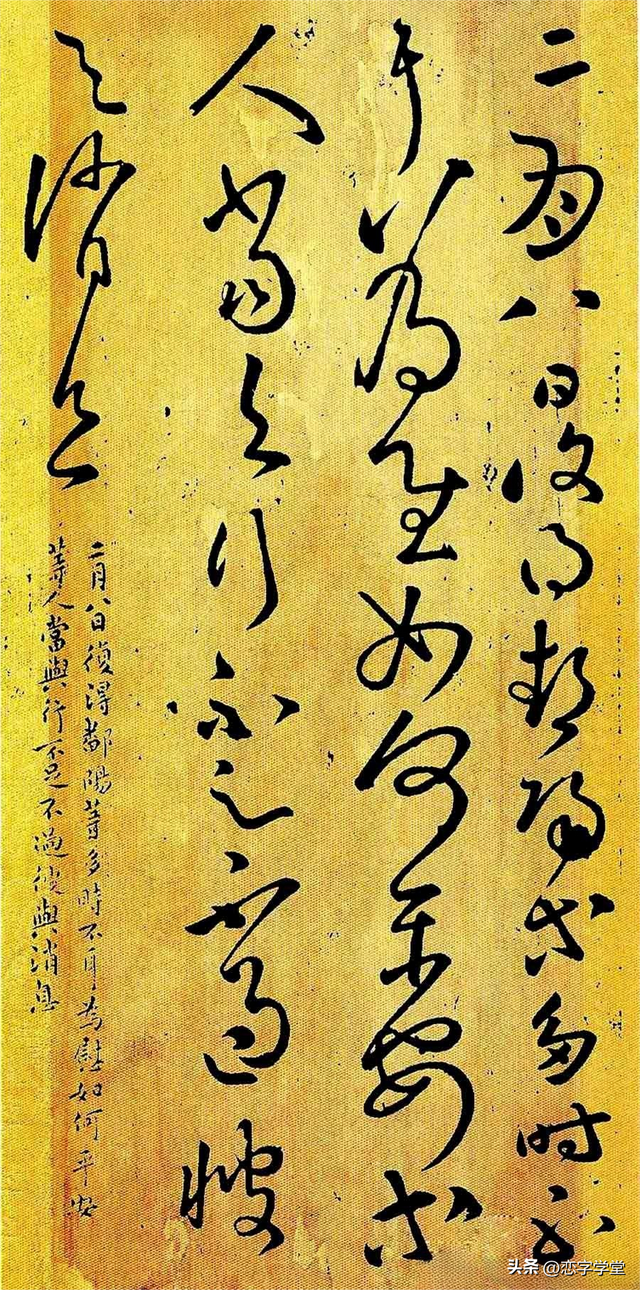 二月八日復得鄱陽等多時不
耳以為慰如何平安等
人當與行不足不過彼
與消息
二月八日復得鄱陽等多時不耳為慰如何平安
等人當與行不足不過彼與消息
头条 @恋字学堂